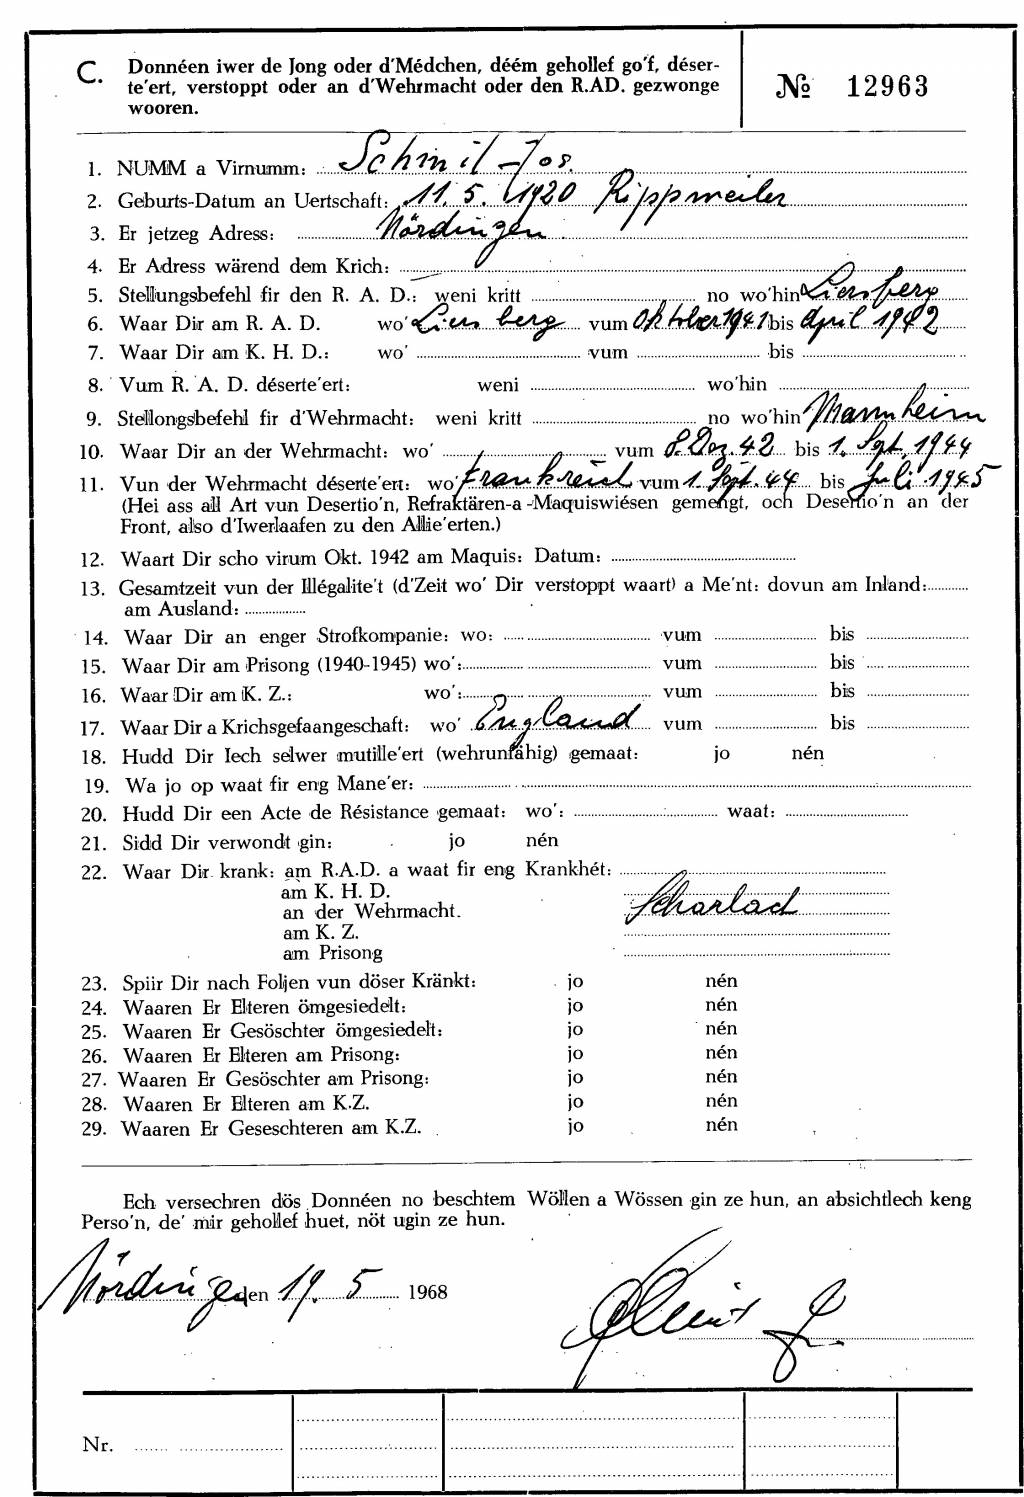 C. Donnéen iwer de Jong oder d'Médchen, déém gehollef go'f, déser-
te'ert, verstoppt oder an d'Wehrmacht oder den R.AD. gezwonge
wooren.
№ 12963
1. NUMM a Virnumm: Schmit - Jos.
2. Geburts-Datum an Uertschaft: 11. 5. 1920 Rippweiler
3. Er jetzeg Adress: Nördingen
4. Er Adress wärend dem Krich:
5. Stellungsbefehl fir den R. A. D.: weni kritt no wo'hin Liersberg
6. Waar Dir am R. A. D. wo' Liersberg vum Oktober 1941 bis April 1942
7. Waar Dir am K. H. D.: wo' vum bis
8. Vum R. A. D. déserte'ert: weni wo'hin
9. Stellongsbefehl fir d'Wehrmacht: weni kritt no wo'hin Mannheim
10. Waar Dir an der Wehrmacht: wo' vum 8. Dez. 42 bis 1. Sept. 1944
11. Vun der Wehrmacht déserte'ert: wo' Frankreich vum 1. Sept. 44 bis Juli 1945
(Hei ass all Art vun Desertio'n, Refraktären-a-Maquiswiésen gemengt, och Desertio'n an der
Front, also d'Iwerlaafen zu den Allie'erten.)
12. Waart Dir scho virum Okt. 1942 am Maquis: Datum:
13. Gesamtzeit vun der Illégalite't (d'Zeit wo' Dir verstoppt waart) a Me'nt: dovun am Inland:
am Ausland:
14. Waar Dir an enger Strofkompanie: wo: vum bis
15. Waar Dir am Prisong (1940-1945) wo': vum bis
16. Waar Dir am K. Z.: wo': vum bis
17. Waar Dir a Krichsgefaangeschaft: wo' England vum bis
18. Hudd Dir Iech selwer mutille'ert (wehrunfähig) gemaat: jo nén
19. Wa jo op waat fir eng Mane'er:
20. Hudd Dir een Acte de Résistance gemaat: wo': waat:
21. Sidd Dir verwondt gin: jo nén
22. Waar Dir krank: am R.A.D. a waat fir eng Krankhét:
am K. H. D.
an der Wehrmacht. Scharlach
am K. Z.
am Prisong
23. Spiir Dir nach Foljen vun döser Kränkt: jo nén
24. Waaren Er Elteren ömgesiedelt: jo nén
25. Waaren Er Gesöschter ömgesiedelt: jo nén
26. Waaren Er Elteren am Prisong: jo nén
27. Waaren Er Gesöschter am Prisong: jo nén
28. Waaren Er Elteren am K.Z. jo nén
29. Waaren Er Geseschteren am K.Z. jo nén
Ech versechren dös Donnéen no beschtem Wöllen a Wössen gin ze hun, an absichtlech keng
Perso'n, de' mir gehollef huet, nöt ugin ze hun.
Nördingen den 19. 5 1968
Schmit J.
Nr.